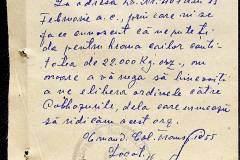 La adresa D. Nr.
Februarie a.c., prin care ni se
face cunoscut că ne puteți
da pentru hrana cailor canti-
tatea de 28.000 Kg. orz, am
onoare a vă ruga să binevoiți
a ne elibera ordinele către
Colhozurile, dela care urmează
să ridicăm acest orz.
Comand. Col. Transp. 1055
Locot.